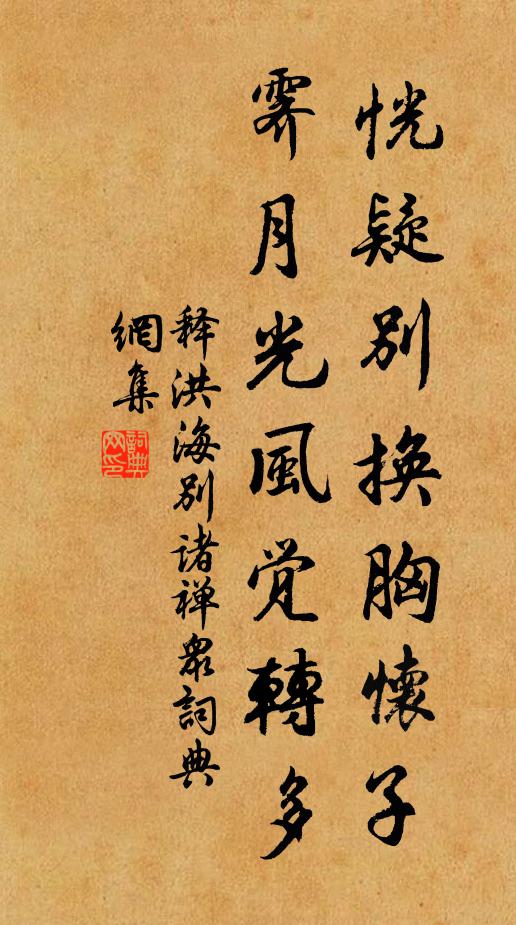 恍疑别换胸懷子
霁月光風覚轉多
释洪海别诸禅衆詞典
網集
詞典网印